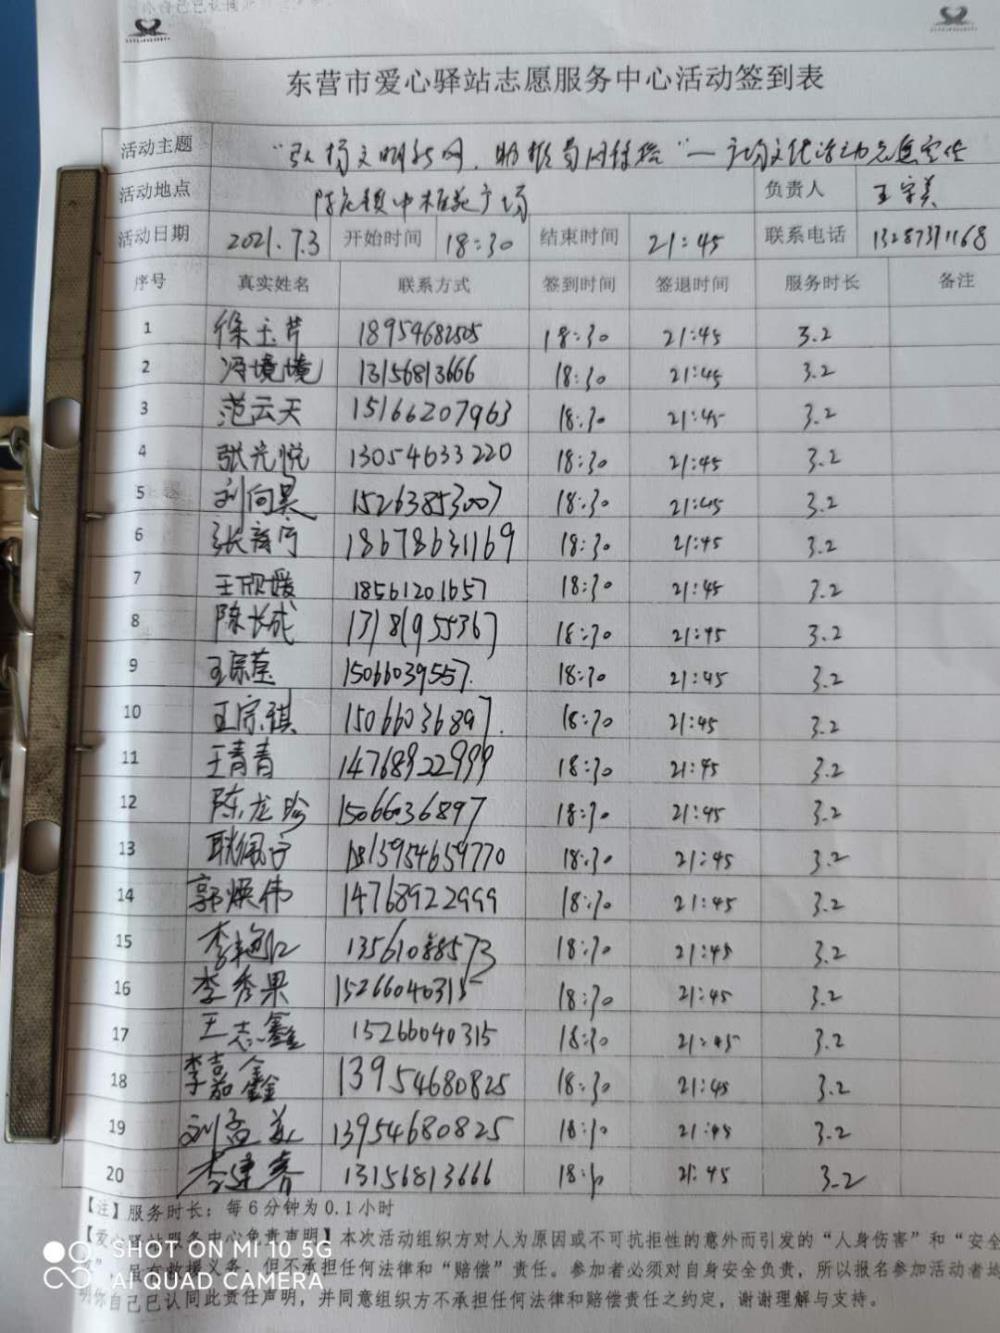 东营市爱心驿站志愿服务中心活动签到表
活动主题 "弘扬文明新网
活动地点 负责人 王宗美
活动日期 2021.7.3 开始时间 18:30 结束时间 21:45 联系电话 13287311168
序号 真实姓名 联系方式 签到时间 签退时间 服务时长 备注
1 徐玉芹 18954682505 18:30 21:45 3.2
2 冯境境 13156813666 18:30 21:45 3.2
3 范云天 15166207963 18:30 21:45 3.2
4 张光悦 13054633220 18:30 21:45 3.2
5 刘向昊 15263853007 18:30 21:45 3.2
6 18678631169 18:30 21:45 3.2
7 王欣媛 18561201657 18:30 21:45 3.2
8 陈长成 13181955367 18:30 21:45 3.2
9 15066039557. 18:30 21:45 3.2
10 王宗祺 15066036897. 18:30 21:45 3.2
11 王青青 14768922999 18:30 21:45 3.2
12 陈龙珍 15066036897 18:30 21:45 3.2
13 耿佩子 15954659770 18:30 21:45 3.2
14 郭焕伟 14768922999 18:30 21:45 3.2
15 18:30 21:45 3.2
16 李秀果 15266040315 18:30 21:45 3.2
17 王志鑫 15266040315 18:30 21:45 3.2
18 李嘉鑫 13954680825 18:30 21:45 3.2
19 刘孟 13954680825 18:30 21:45 3.2
20 李建春 13156813666 18:30 21:45 3.2
【注】服务时长：每6分钟为0.1小时
【爱心驿站服务中心免责声明】本次活动组织方对人为原因或不可抗拒性的意外而引发的"人身伤害"和"安全
但不承担任何法律和"赔偿"责任。参加者必须对自身安全负责，所以报名参加活动者
明你自己已认同此责任声明，并同意组织方不承担任何法律和赔偿责任之约定，谢谢理解与支持。
SHOT ON MI 10 5G
AI QUAD CAMERA